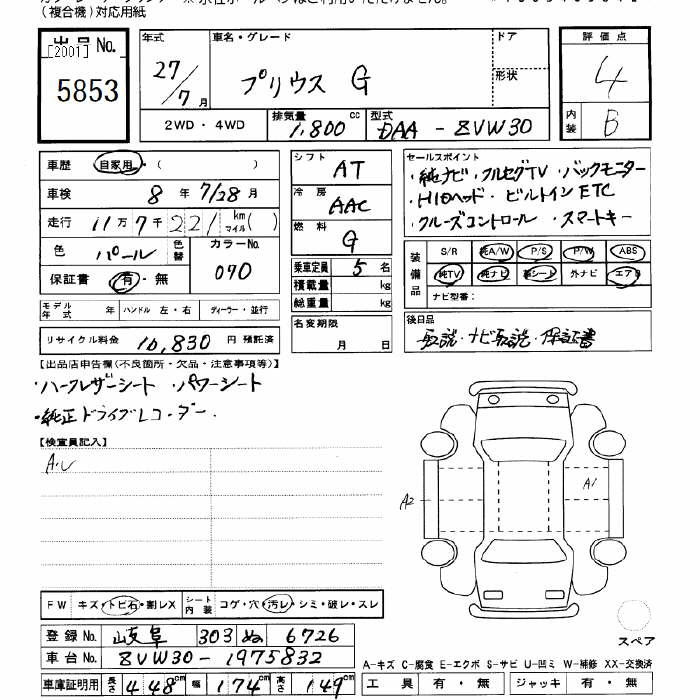 (複合機)対応用紙
出品 No.
[2001]
5853
年式 27/7 月
車名・グレード プリウス G
ドア
形状
評価点 4
内装 B
2WD・4WD
排気量 1,800 cc
型式 DAA - ZVW30
車歴 自家用・( )
車検 8 年 7/28 月
走行 11 万 7 千 221 km マイル( )
色 パール 色替
カラーNo. 070
保証書 有・無
モデル年式 年 ハンドル 左・右 ディーラー・並行
リサイクル料金 10,830 円 預託済
シフト AT
冷房 AAC
燃料 G
乗車定員 5 名
積載量 kg
総重量 kg
名変期限 月 日
セールスポイント
・純ナビ・フルセグTV・バックモニター
・HIDヘッド・ビルトインETC
・クルーズコントロール・スマートキー
装備品 S/R 純A/W P/S P/W ABS
純TV 純ナビ 革シート 外ナビ エアB
ナビ型番:
後日品
取説・ナビ取説・保証書
【出品店申告欄(不良箇所・欠品・注意事項等)】
・ハーフレザーシート ・パワーシート
・純正ドライブレコーダー
【検査員記入】
A.U
A2
A1
FW キズ・トビ石・割レX シート内装 コゲ・穴・汚レ・シミ・破レ・スレ
スペア
登録 No. 岐阜 303 ぬ 6726
車台 No. ZVW30-1975832
A-キズ C-腐食 E-エクボ S-サビ U-凹ミ W-補修 XX-交換済
車庫証明用 長さ 448 cm 幅 174 cm 高さ 149 cm
工具 有・無 ジャッキ 有・無